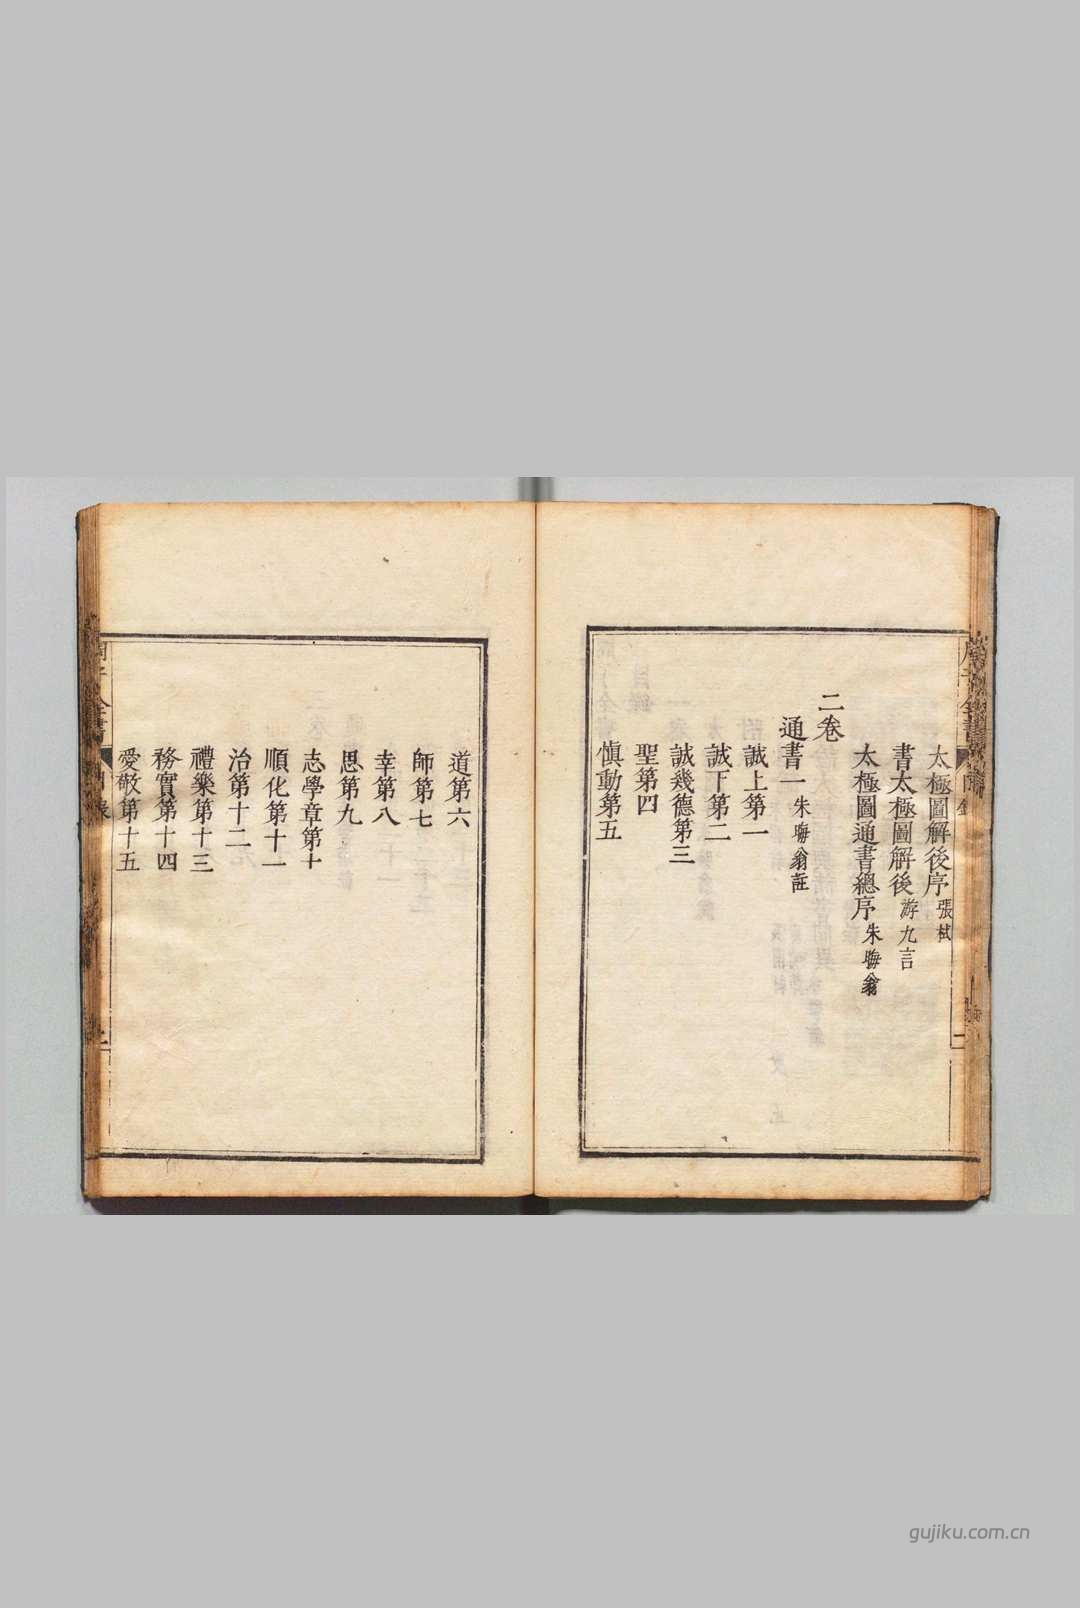 太極圖解後序 張栻
書太極圖解後 游九言
太極圖通書總序 朱晦翁
二卷
通書一 朱晦翁註
誠上第一
誠下第二
誠幾德第三
聖第四
慎動第五
道第六
師第七
幸第八
思第九
志學章第十
順化第十一
治第十二
禮樂第十三
務實第十四
愛敬第十五
周子全書 目錄 二
gujiku.com.cn